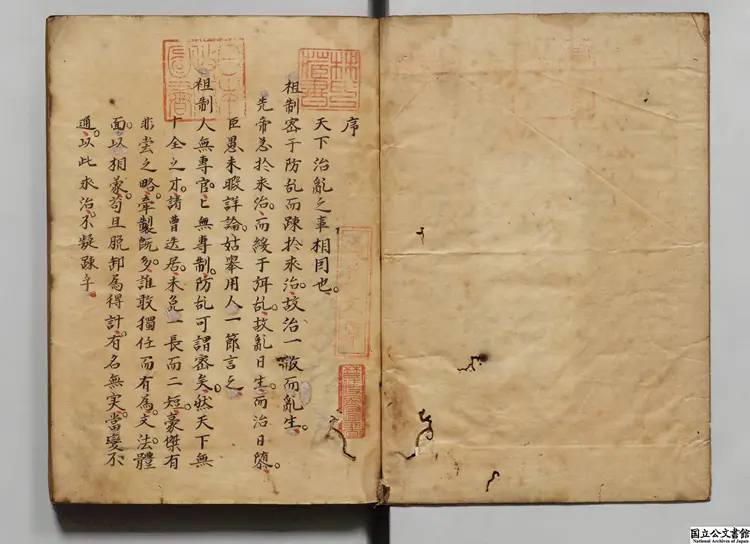 序
天下治亂之事相因也。
祖制密于防乱而踈於求治。故治一敝而亂生。
先帝急於求治。而緩于弭乱。故亂日生。而治日隳。
臣愚未暇詳論。姑舉用人一節言之。
祖制人無專官。官無專制。防乱可謂密矣。然天下無
十全之才。諸曹迭居。未免一長而二短。豪傑有
非尝之略。牽製既多。誰敢獨任而有為。文法體
面。以相蒙。苟且脫卸為得計。有名無实。當變不
通。以此求治。不凝踈乎。
林氏蔵書
国立公文書館
National Archives of Japan